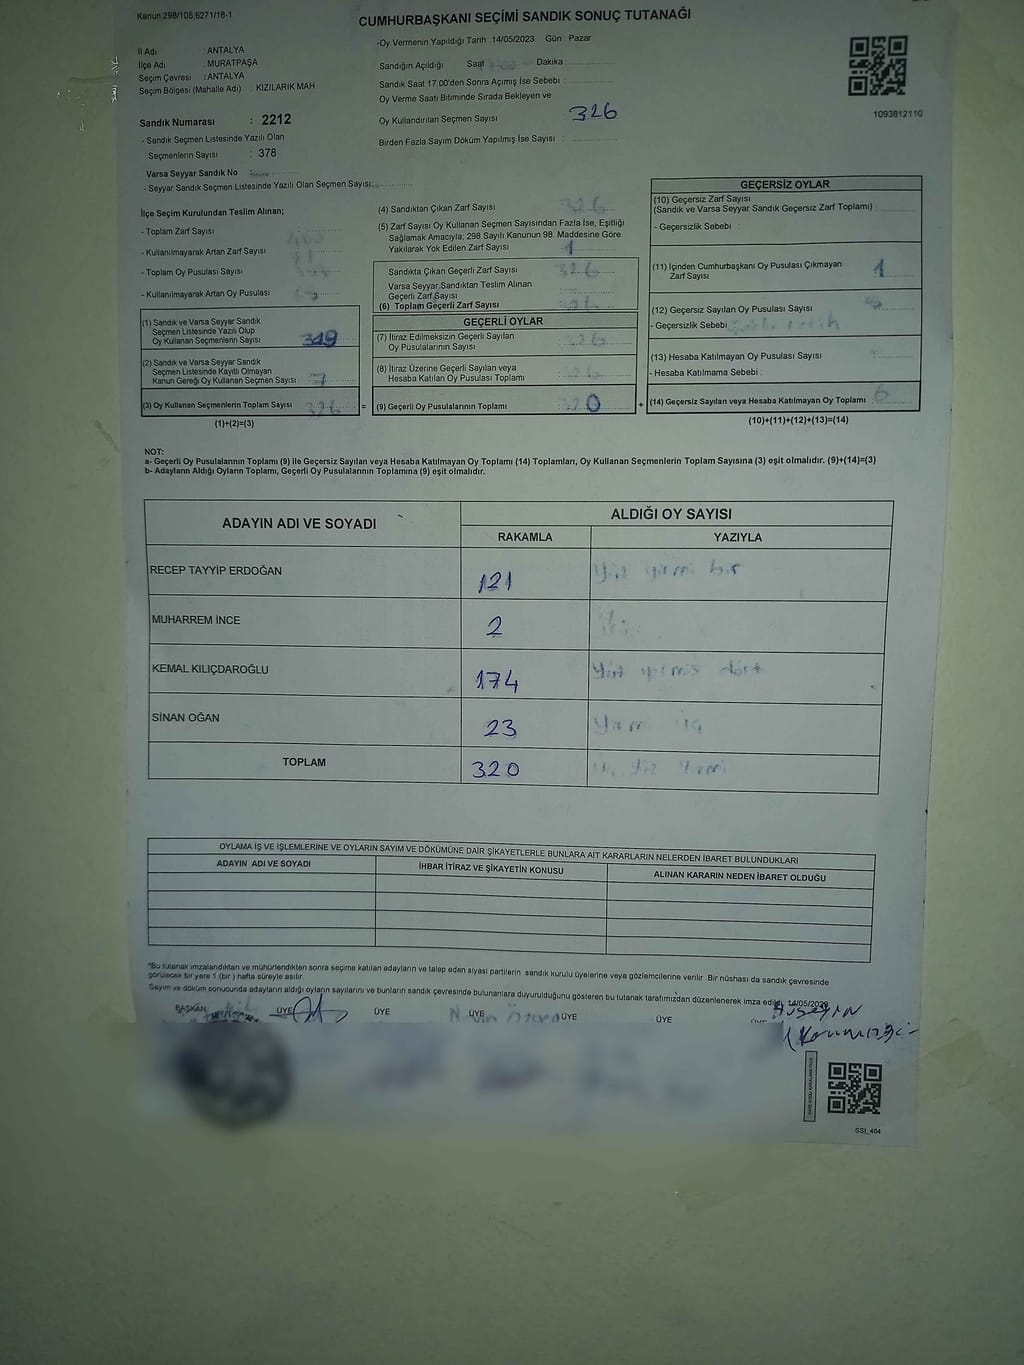 Kanun:298/105,6271/18-1
CUMHURBAŞKANI SEÇİMİ SANDIK SONUÇ TUTANAĞI
İl Adı : ANTALYA
İlçe Adı : MURATPAŞA
Seçim Çevresi : ANTALYA
Seçim Bölgesi (Mahalle Adı) : KIZILARIK MAH
Sandık Numarası : 2212
- Sandık Seçmen Listesinde Yazılı Olan
Seçmenlerin Sayısı : 378
Varsa Seyyar Sandık No
- Seyyar Sandık Seçmen Listesinde Yazılı Olan Seçmen Sayısı:
-Oy Vermenin Yapıldığı Tarih 14/05/2023 Gün : Pazar
Sandığın Açıldığı Saat Dakika :
Sandık Saat 17:00'den Sonra Açımış İse Sebebi :
Oy Verme Saati Bitiminde Sırada Bekleyen ve
Oy Kullandırılan Seçmen Sayısı : 326
Birden Fazla Sayım Döküm Yapılmış İse Sayısı :
1093812110
İlçe Seçim Kurulundan Teslim Alınan;
- Toplam Zarf Sayısı
- Kullanılmayarak Artan Zarf Sayısı
- Toplam Oy Pusulası Sayısı
- Kullanılmayarak Artan Oy Pusulası
(1) Sandık ve Varsa Seyyar Sandık
Seçmen Listesinde Yazılı Olup
Oy Kullanan Seçmenlerin Sayısı 319
(2) Sandık ve Varsa Seyyar Sandık
Seçmen Listesinde Kayıtlı Olmayan
Kanun Gereği Oy Kullanan Seçmen Sayısı 7
(3) Oy Kullanan Seçmenlerin Toplam Sayısı 326 =
(1)+(2)=(3)
(4) Sandıktan Çıkan Zarf Sayısı 326
(5) Zarf Sayısı Oy Kullanan Seçmen Sayısından Fazla İse, Eşitliği
Sağlamak Amacıyla, 298 Sayılı Kanunun 98. Maddesine Göre
Yakılarak Yok Edilen Zarf Sayısı : 1
Sandıkta Çıkan Geçerli Zarf Sayısı 326
Varsa Seyyar Sandıktan Teslim Alınan
Geçerli Zarf Sayısı
(6) Toplam Geçerli Zarf Sayısı 326
GEÇERLİ OYLAR
(7) İtiraz Edilmeksizin Geçerli Sayılan
Oy Pusulalarının Sayısı
(8) İtiraz Üzerine Geçerli Sayılan veya
Hesaba Katılan Oy Pusulası Toplamı
(9) Geçerli Oy Pusulalarının Toplamı 320 +
GEÇERSİZ OYLAR
(10) Geçersiz Zarf Sayısı
(Sandık ve Varsa Seyyar Sandık Geçersiz Zarf Toplamı) :
- Geçersizlik Sebebi :
(11) İçinden Cumhurbaşkanı Oy Pusulası Çıkmayan
Zarf Sayısı 1
(12) Geçersiz Sayılan Oy Pusulası Sayısı 5
- Geçersizlik Sebebi
(13) Hesaba Katılmayan Oy Pusulası Sayısı
- Hesaba Katılmama Sebebi :
(14) Geçersiz Sayılan veya Hesaba Katılmayan Oy Toplamı 6
(10)+(11)+(12)+(13)=(14)
NOT:
a- Geçerli Oy Pusulalarının Toplamı (9) ile Geçersiz Sayılan veya Hesaba Katılmayan Oy Toplamı (14) Toplamları, Oy Kullanan Seçmenlerin Toplam Sayısına (3) eşit olmalıdır. (9)+(14)=(3)
b- Adayların Aldığı Oyların Toplamı, Geçerli Oy Pusulalarının Toplamına (9) eşit olmalıdır.
ADAYIN ADI VE SOYADI
ALDIĞI OY SAYISI
RAKAMLA YAZIYLA
RECEP TAYYİP ERDOĞAN 121 Yüz yirmi bir
MUHARREM İNCE 2 iki
KEMAL KILIÇDAROĞLU 174 Yüz yetmiş dört
SİNAN OĞAN 23 Yirmi üç
TOPLAM 320 Üç Yüz Yirmi
OYLAMA İŞ VE İŞLEMLERİNE VE OYLARIN SAYIM VE DÖKÜMÜNE DAİR ŞİKAYETLERLE BUNLARA AİT KARARLARIN NELERDEN İBARET BULUNDUKLARI
ADAYIN ADI VE SOYADI İHBAR İTİRAZ VE ŞİKAYETİN KONUSU ALINAN KARARIN NEDEN İBARET OLDUĞU
*Bu tutanak imzalandıktan ve mühürlendikten sonra seçime katılan adayların ve talep eden siyasi partilerin sandık kurulu üyelerine veya gözlemcilerine verilir. Bir nüshası da sandık çevresinde
görülecek bir yere 1 (bir ) hafta süreyle asılır.
Sayım ve döküm sonucunda adayların aldığı oyların sayılarını ve bunların sandık çevresinde bulunanlara duyurulduğunu gösteren bu tutanak tarafımızdan düzenlenerek imza edildi. 14/05/2023
BAŞKAN ÜYE ÜYE ÜYE ÜYE ÜYE
SSI_404